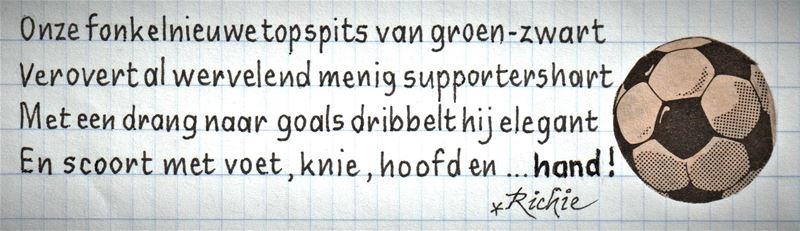 Onze fonkelnieuwe topspits van groen-zwart
Verovert al wervelend menig supportershart
Met een drang naar goals dribbelt hij elegant
En scoort met voet, knie, hoofd en ... hand!
*Richie